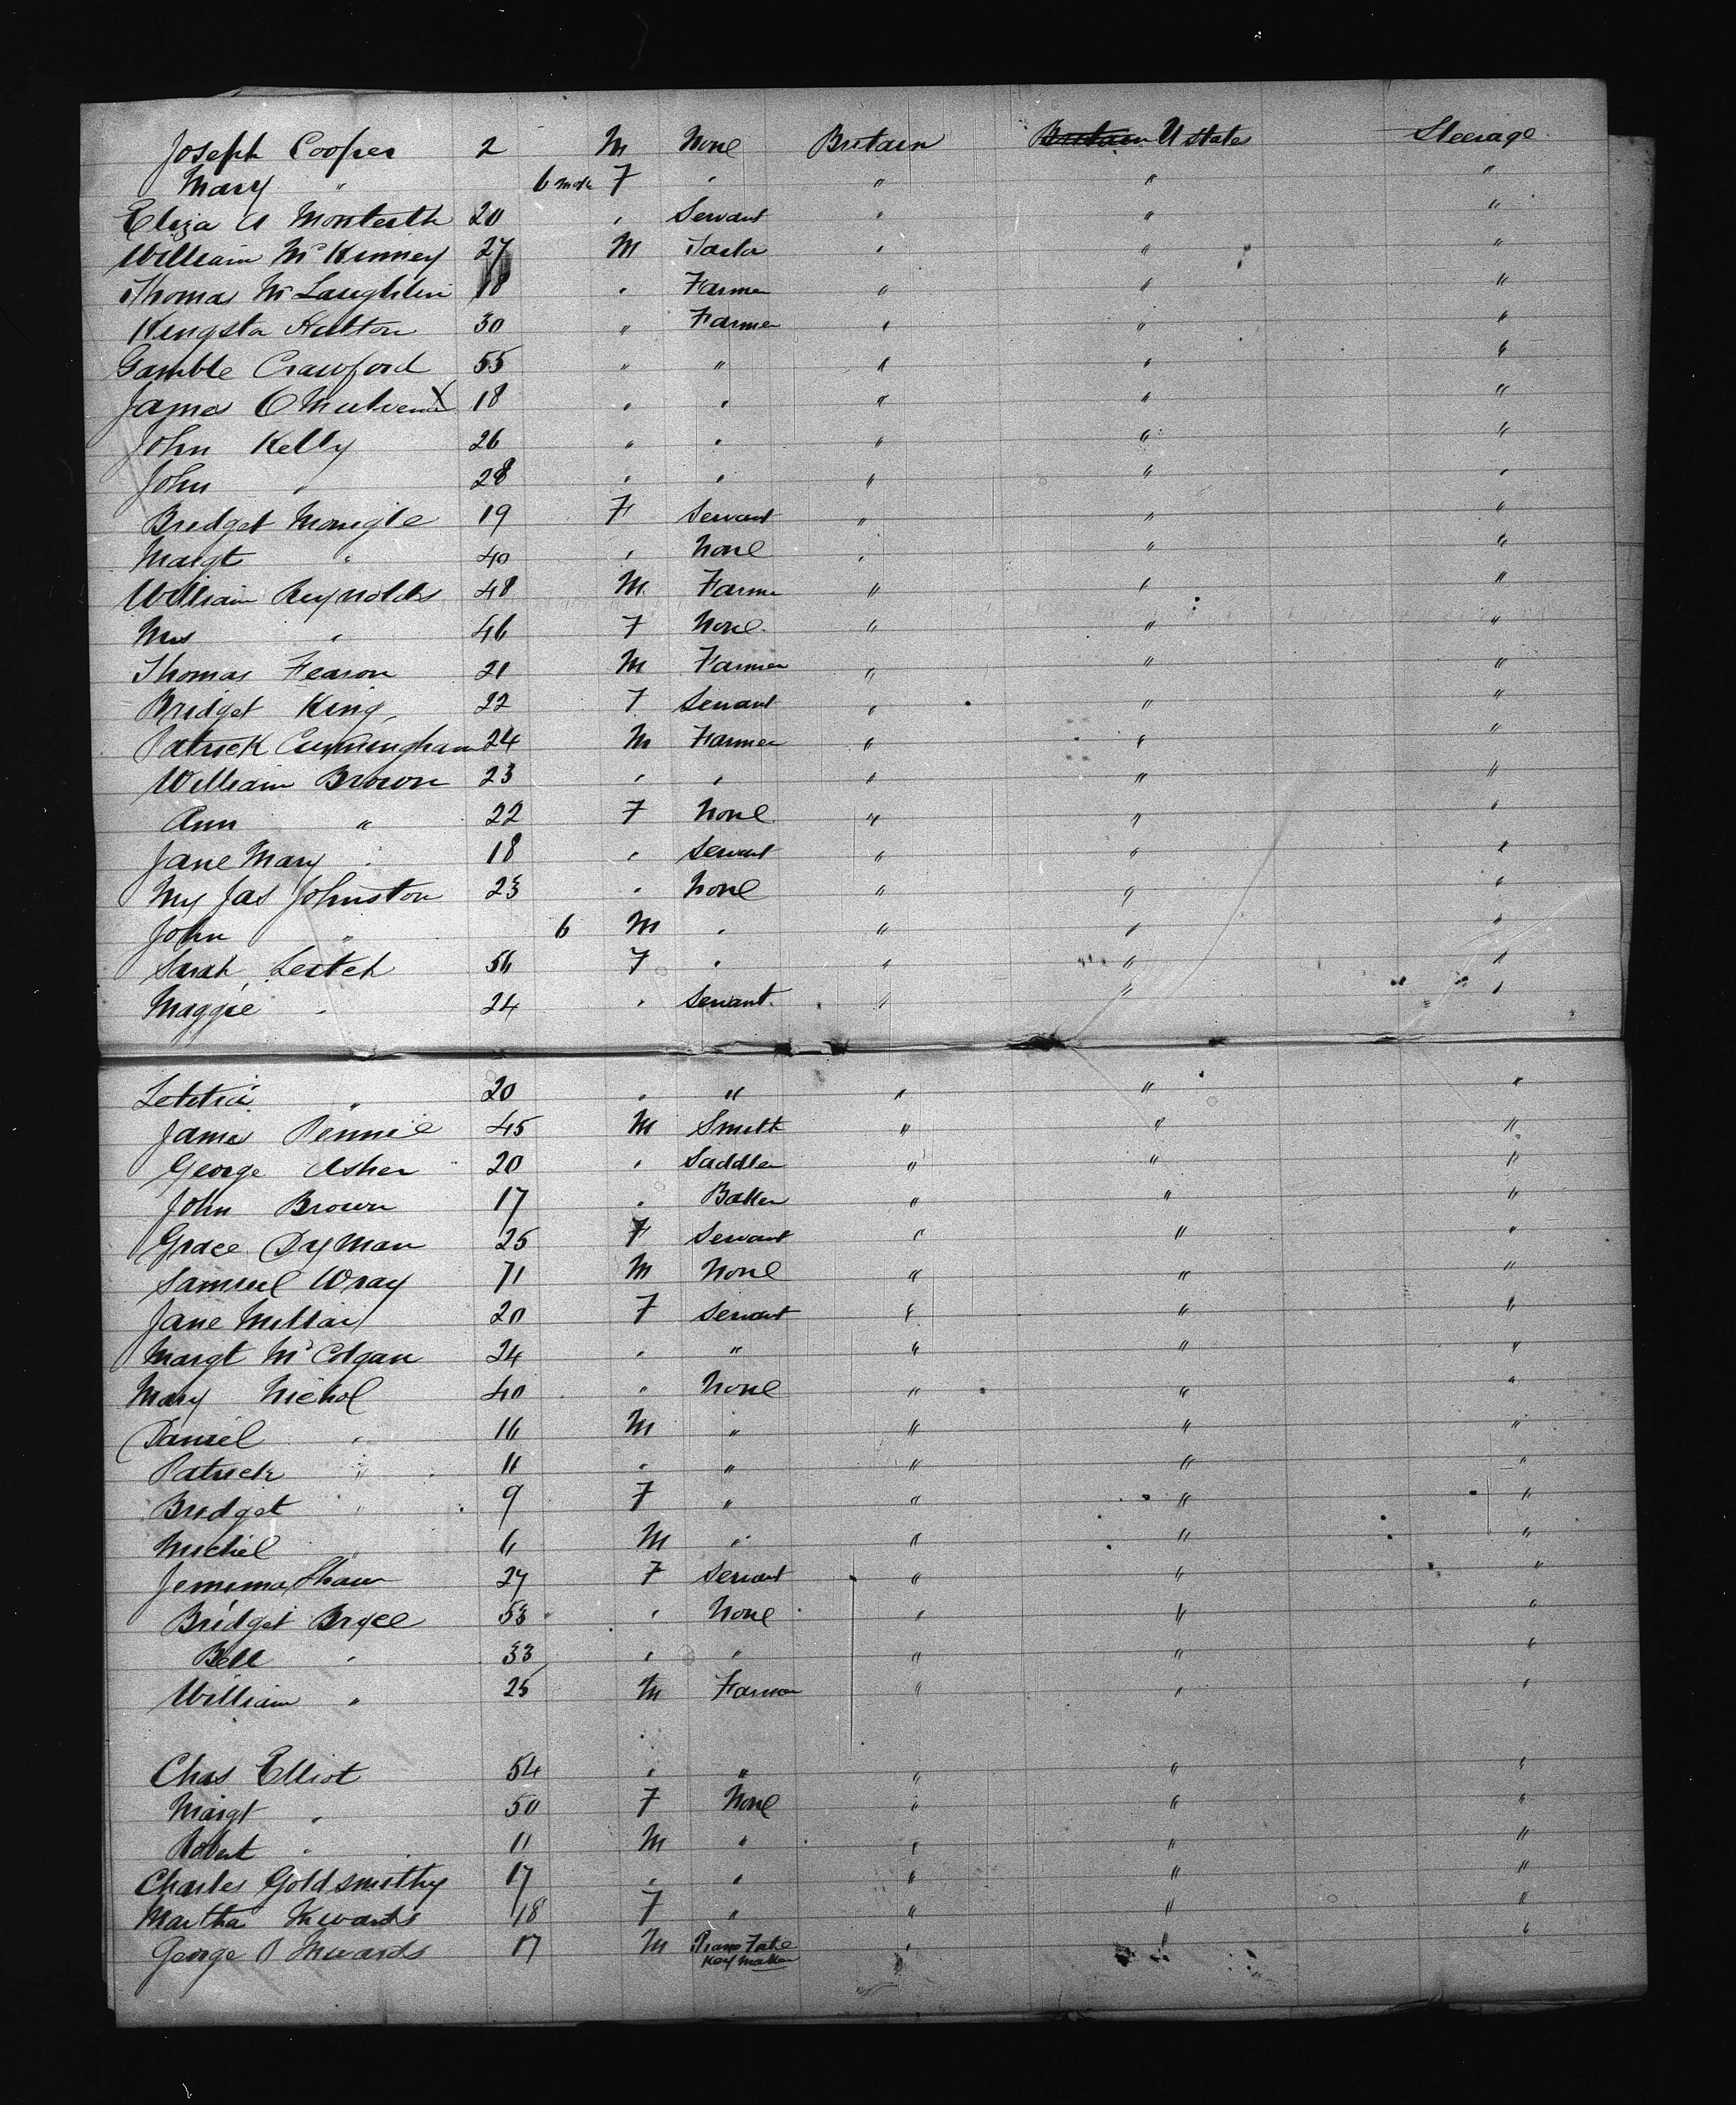 Joseph Cooper 2 M None Britain Britain U States Steerage
Mary " 6 mos F " " " "
Eliza A Monteith 20 " Servant " " "
William McKinney 27 M Tailor " " "
Thomas McLaughlin 18 " Farmer " " "
Hutton 30 " Farmer " " "
Gamble Crawford 55 " " " " "
James 18 " " " " "
John Kelly 26 " " " " "
John " 28 " " " " "
Bridget Monigle 19 F Servant " " "
Margt " 40 " None " " "
William Reynolds 48 M Farmer " " "
Mrs " 46 F None " " "
Thomas Fearon 21 M Farmer " " "
Bridget King 22 F Servant " " "
Patrick Cunningham 24 M Farmer " " "
William Brown 23 " " " " "
Ann " 22 F None " " "
Jane Mary " 18 " Servant " " "
Jas Johnston 23 " None " " "
John " 6 M " " " "
Sarah Leitch 56 F " " " "
Maggie " 24 " Servant " " "
Letitia " 20 " " " " "
James Rennie 45 M Smith " " "
George Asher 20 " Saddler " " "
John Brown 17 " Baker " " "
Grace Dyman 25 F Servant " " "
Samuel Wray 71 M None " " "
Jane Millar 20 F Servant " " "
Margt McColgan 24 " " " " "
Mary Nichol 40 " None " " "
Daniel " 16 M " " " "
Patrick " 11 " " " " "
Bridget " 9 F " " " "
Michel " 6 M " " " "
Jemima Shaw 27 F Servant " " "
Bridget Bryce 53 " None " " "
Bell " 33 " " " " "
William " 25 M Farmer " " "
Chas Elliot 54 " " " " "
Margt " 50 F None " " "
Robert " 11 M " " " "
Charles Goldsmithy 17 " " " " "
Martha Inwards 18 F " " " "
George P Inwards 17 M Piano Forte " " "
Key Maker